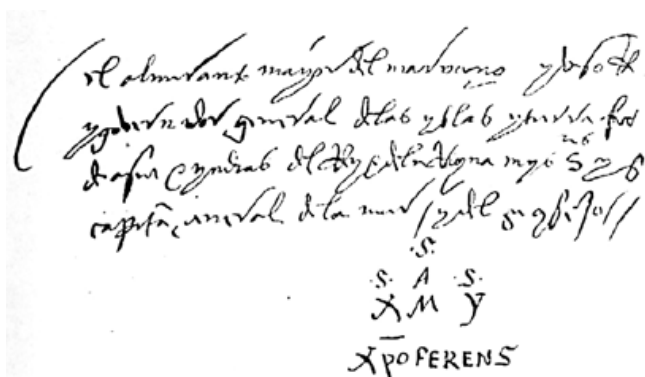 el almirante mayor del mar oceano y viso Rey
y governador general de las yslas y tierra
de asia e yndias del Rey e de la Reyna mys S y su
capitã general de la mar y del
.S.
.S. A .S.
X M Y
Xp̄o FERENS